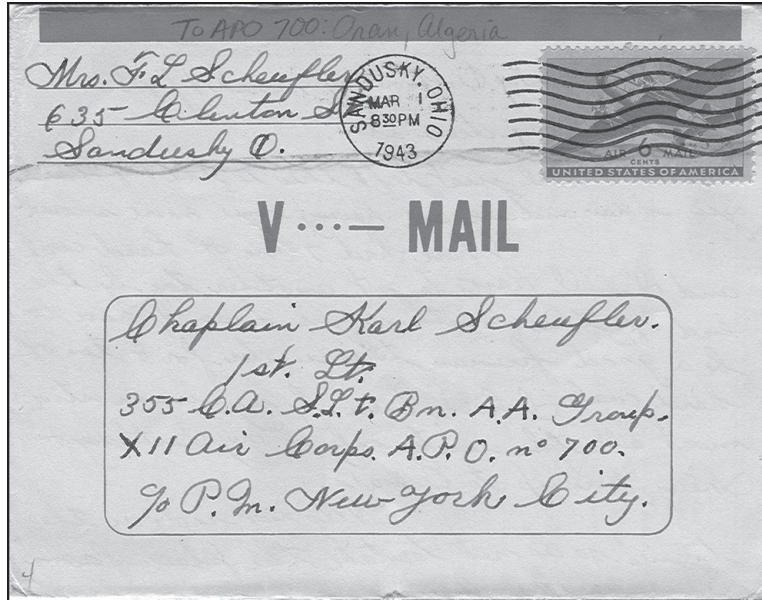 To APO 700: Oran, Algeria
Mrs. F L Scheufler
635 Clinton S
Sandusky O.
SANDUSKY, OHIO
MAR 1
8 30 PM
1943
AIR 6 MAIL
CENTS
UNITED STATES OF AMERICA
V ···— MAIL
Chaplain Karl Scheufler.
1st. Lt.
355 C.A. S.L.t. Bn. A.A. Group.
XII Air Corps. A.P.O. nº 700.
c/o P.M. New York City.